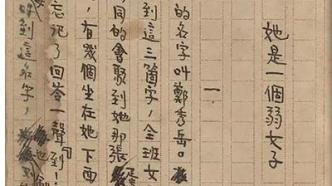 她是一個弱女子
一
的名字叫鄭秀岳。
到這三箇字，全班女
同的會聚到她那張
，有幾個坐在她下
忘記了回答一聲到！
到這名字，